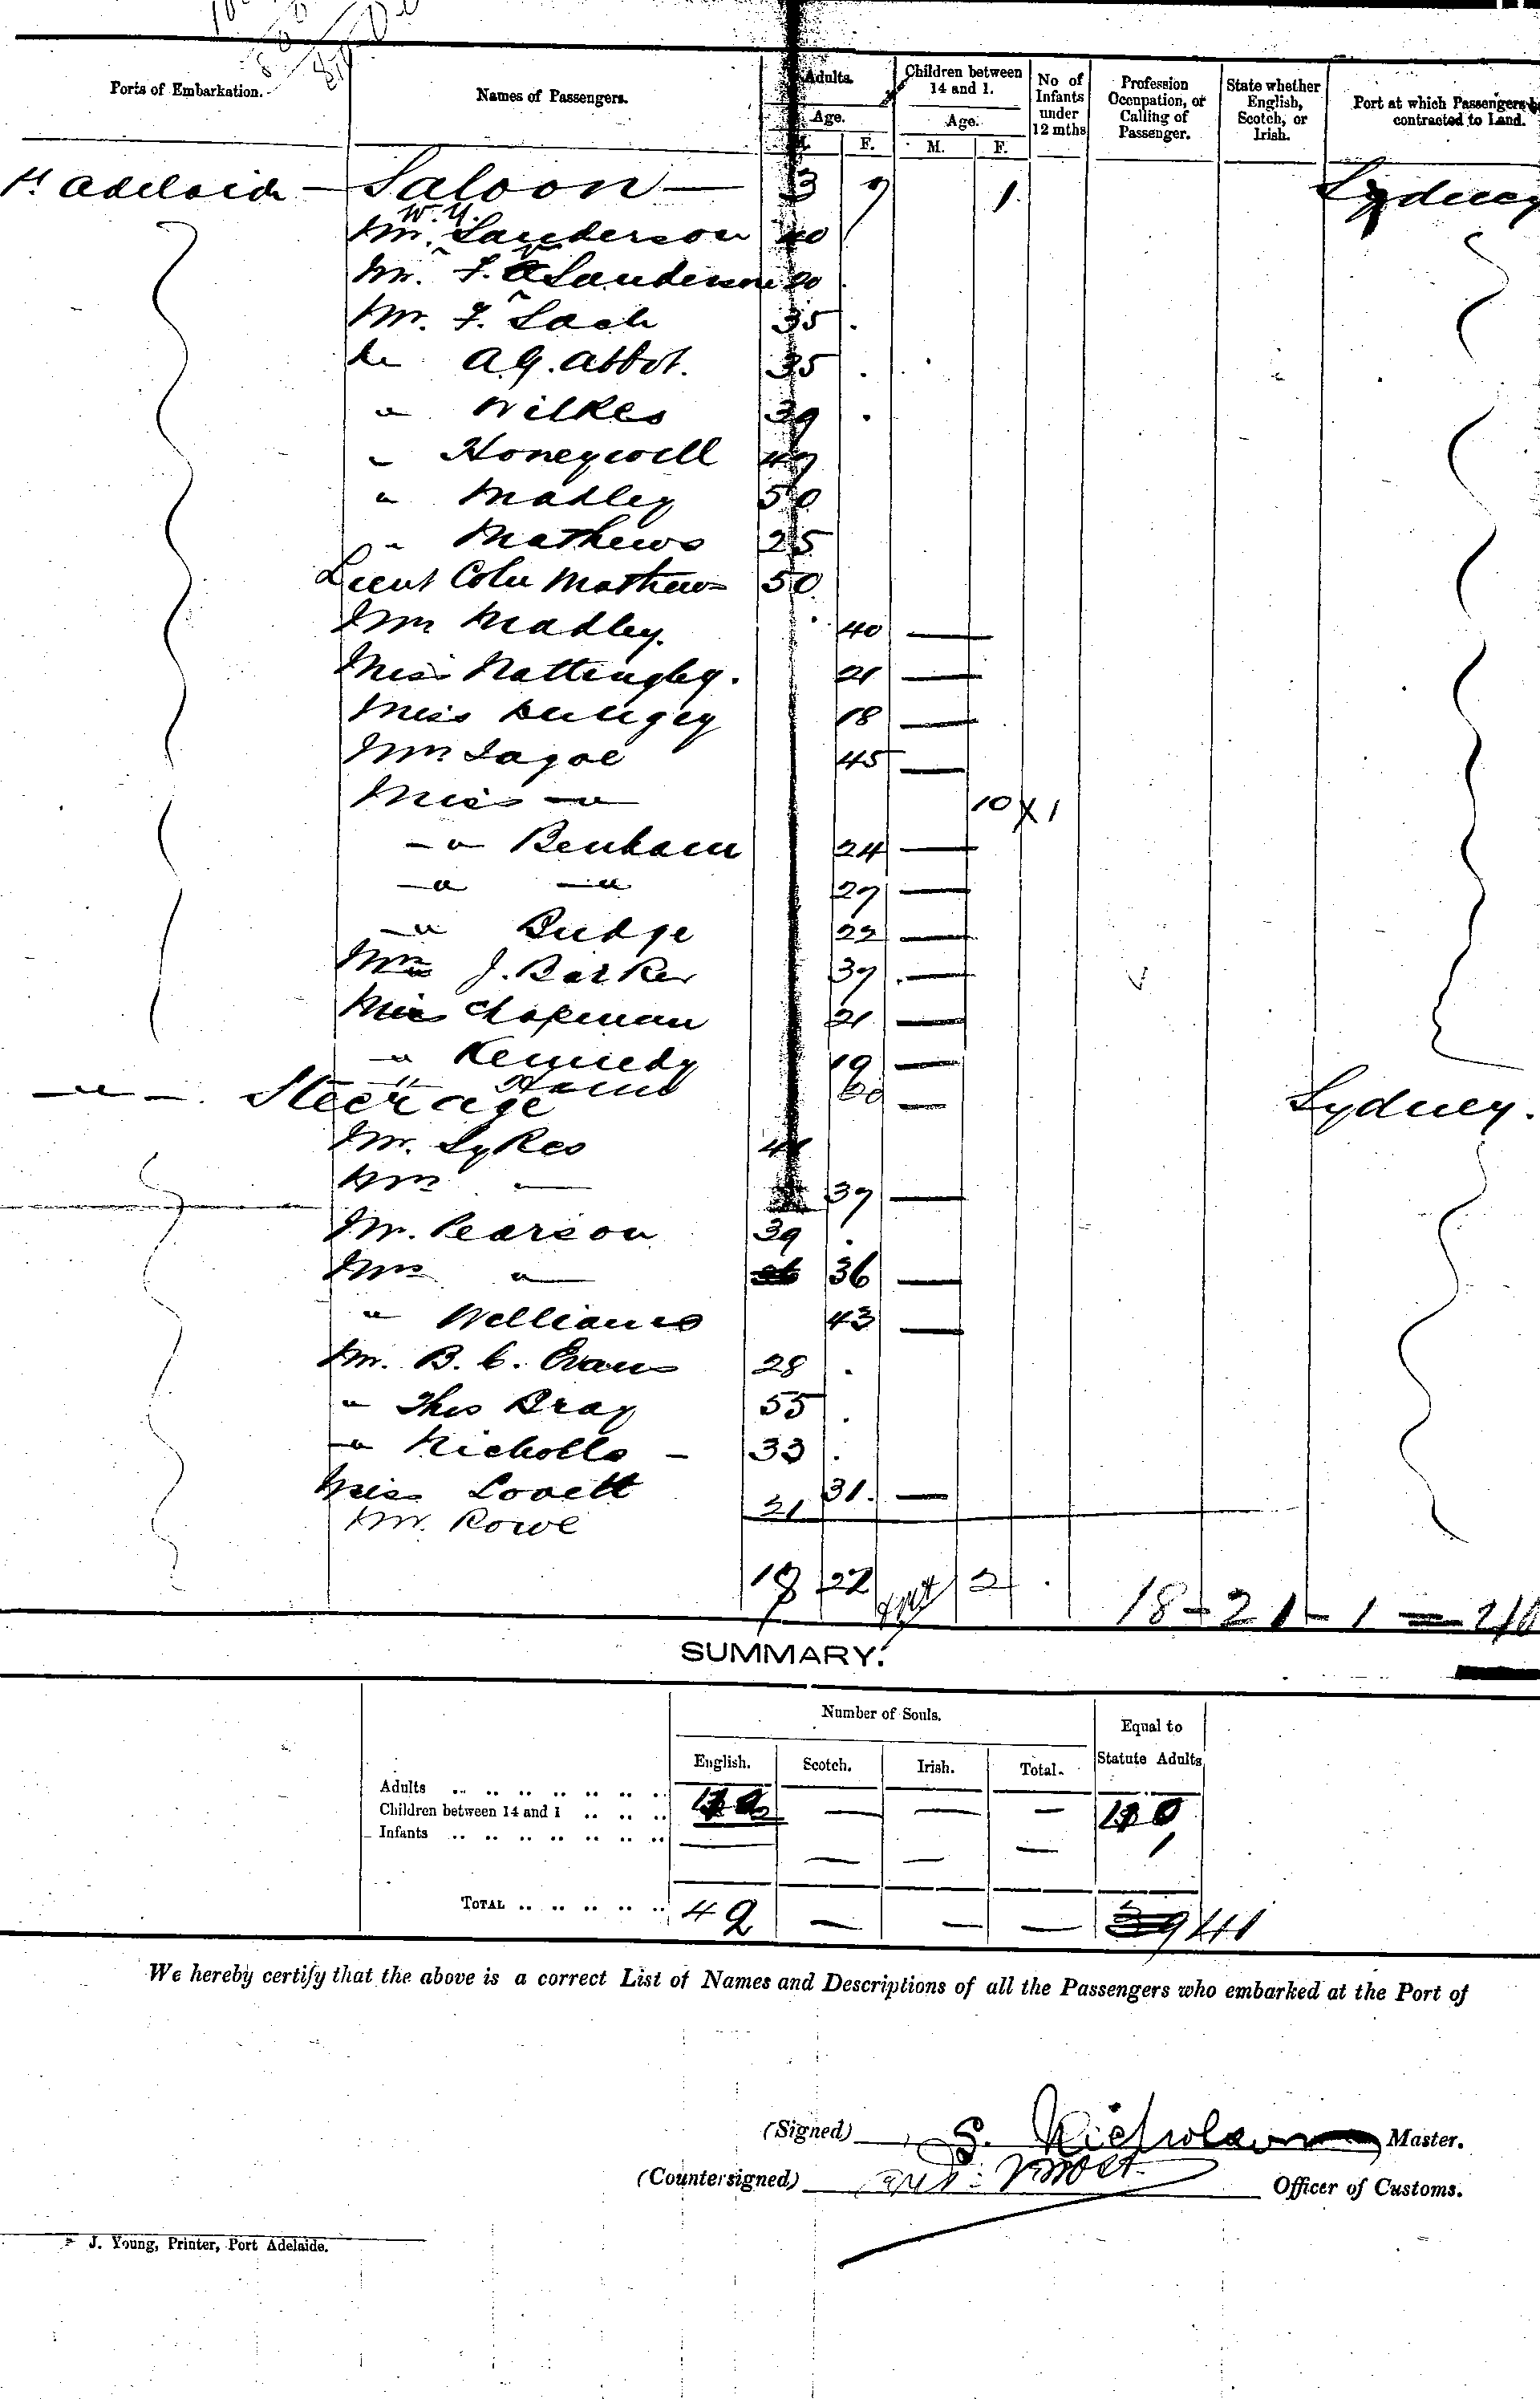 Ports of Embarkation. Names of Passengers. Adults. Age. M. F. Children between 14 and 1. Age. M. F. No of Infants under 12 mths Profession Occupation, or Calling of Passenger. State whether English, Scotch, or Irish. Port at which Passengers contracted to Land.
Pt Adelaide — Saloon — 3 7 1. Sydney
Mr. W. Y. Sanderson 40
Mr. F. Sanderson 20
Mr. F. Sach 35
A.G. Abbot. 35
" Wilkes 39
" Honeywell 47
" Madley 50
" Mathews 25
Lieut Coln Mathews 50
Mrs Madley. 40 —
Miss Nattingley. 21 —
Miss 18 —
Mrs Sagoe 45 —
Miss —"— 10 X 1
—"— Benham 24 —
—"— —"— 27 —
—"— Budge 22 —
Mrs J. Barker 37 —
Miss Chapman 21 —
—"— Kennedy 19 —
—"— 60 —
—"— Steerage Sydney.
Mr. Sykes 41
Mrs — 37 —
Mr. Pearson 39
Mrs " 36 —
" Williams 43 —
Mr. B. C. Evans 28
" Thos Bray 55
" Nicholls — 33
Miss Lovett 31. —
Mr. Rowe 21
18 22 2 18 — 21 — 1 =
SUMMARY.
Number of Souls. Equal to Statute Adults
English. Scotch. Irish. Total.
Adults .. .. .. .. .. .. ..
Children between 14 and 1 .. .. .. — — —
Infants .. .. .. .. .. .. .. — — — — 1
TOTAL .. .. .. .. .. 42 — — — 39 41
We hereby certify that the above is a correct List of Names and Descriptions of all the Passengers who embarked at the Port of
(Signed) S. Nicholson Master.
(Countersigned) Officer of Customs.
J. Young, Printer, Port Adelaide.